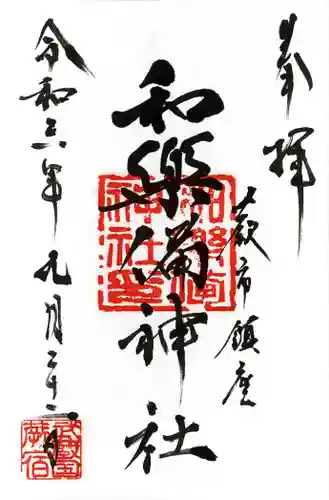 奉拝
蕨市鎮座
和樂備神社
和樂備
神社印
令和六年九月二十一日
武蔵国
蕨宿